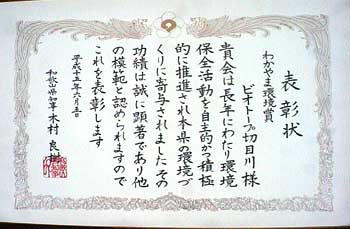 表彰状
わかやま環境賞
ビオトープ切目川様
貴会は長年にわたり環境
保全活動を自主的かつ積極
的に推進され本県の環境づ
くりに寄与されましたその
功績は誠に顕著であり他
の模範と認められますので
これを表彰します
平成十五年六月五日
和歌山県知事木村良樹